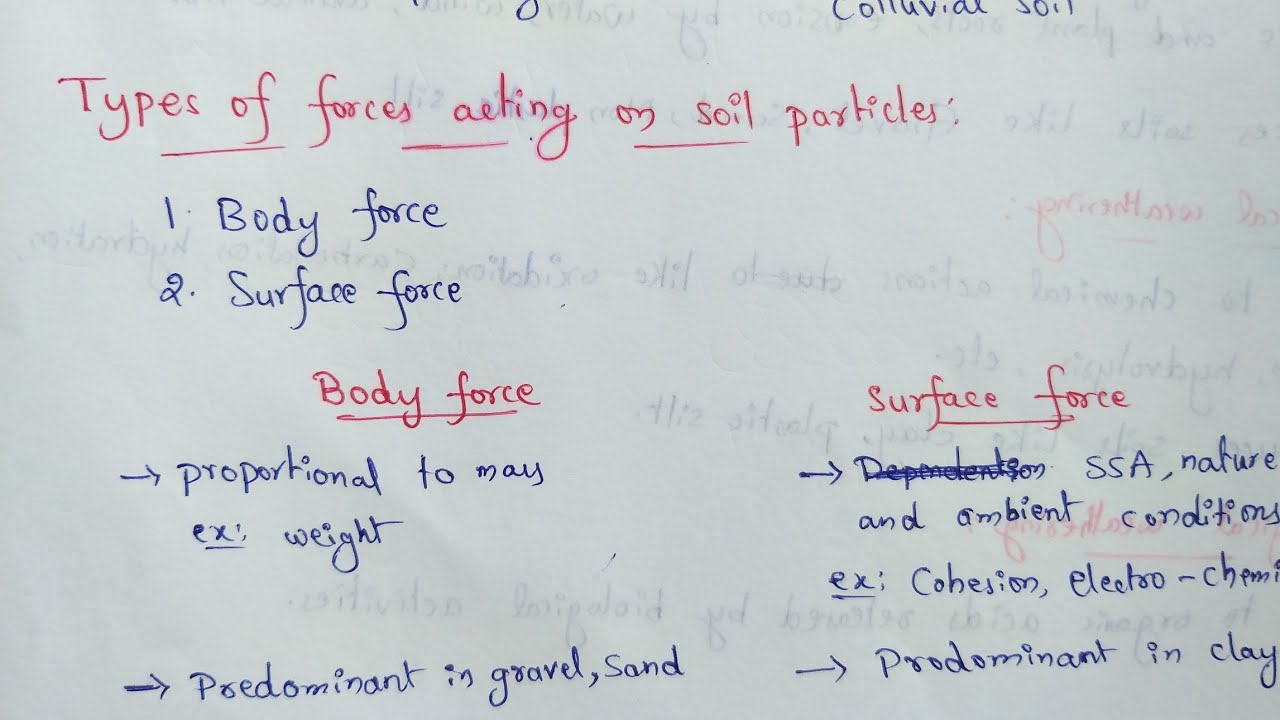 Colluvial soil
Types of forces acting on soil particles:
1. Body force
2. Surface force
Body force
→ proportional to mass
ex: weight
→ Predominant in gravel, sand
Surface force
→ Dependent on SSA, nature
and ambient conditions
ex: Cohesion, electro-chemi
→ Prodominant in clay